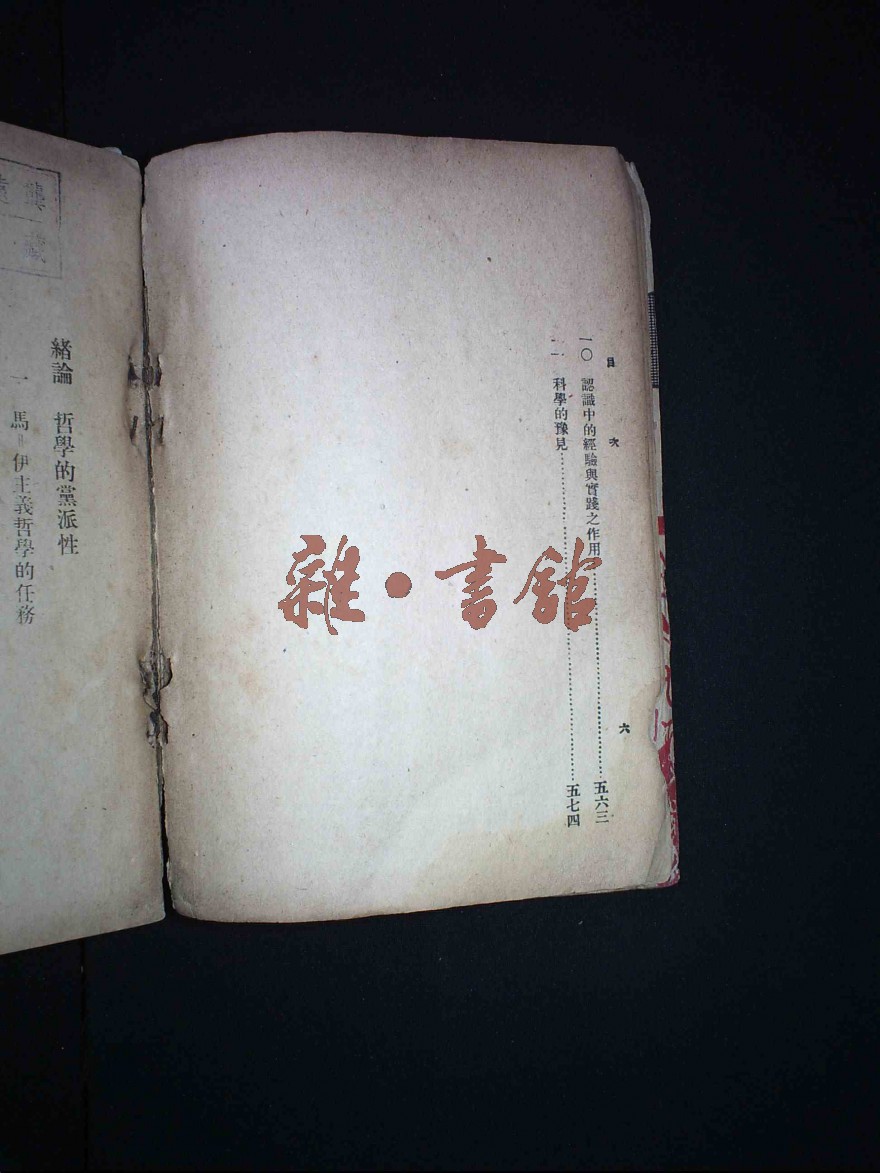 目次 六
一〇 認識中的經驗與實踐之作用……五六三
一一 科學的豫見……五七四
緒論 哲學的黨派性
一 馬＝伊主義哲學的任務
雜・書館
藏